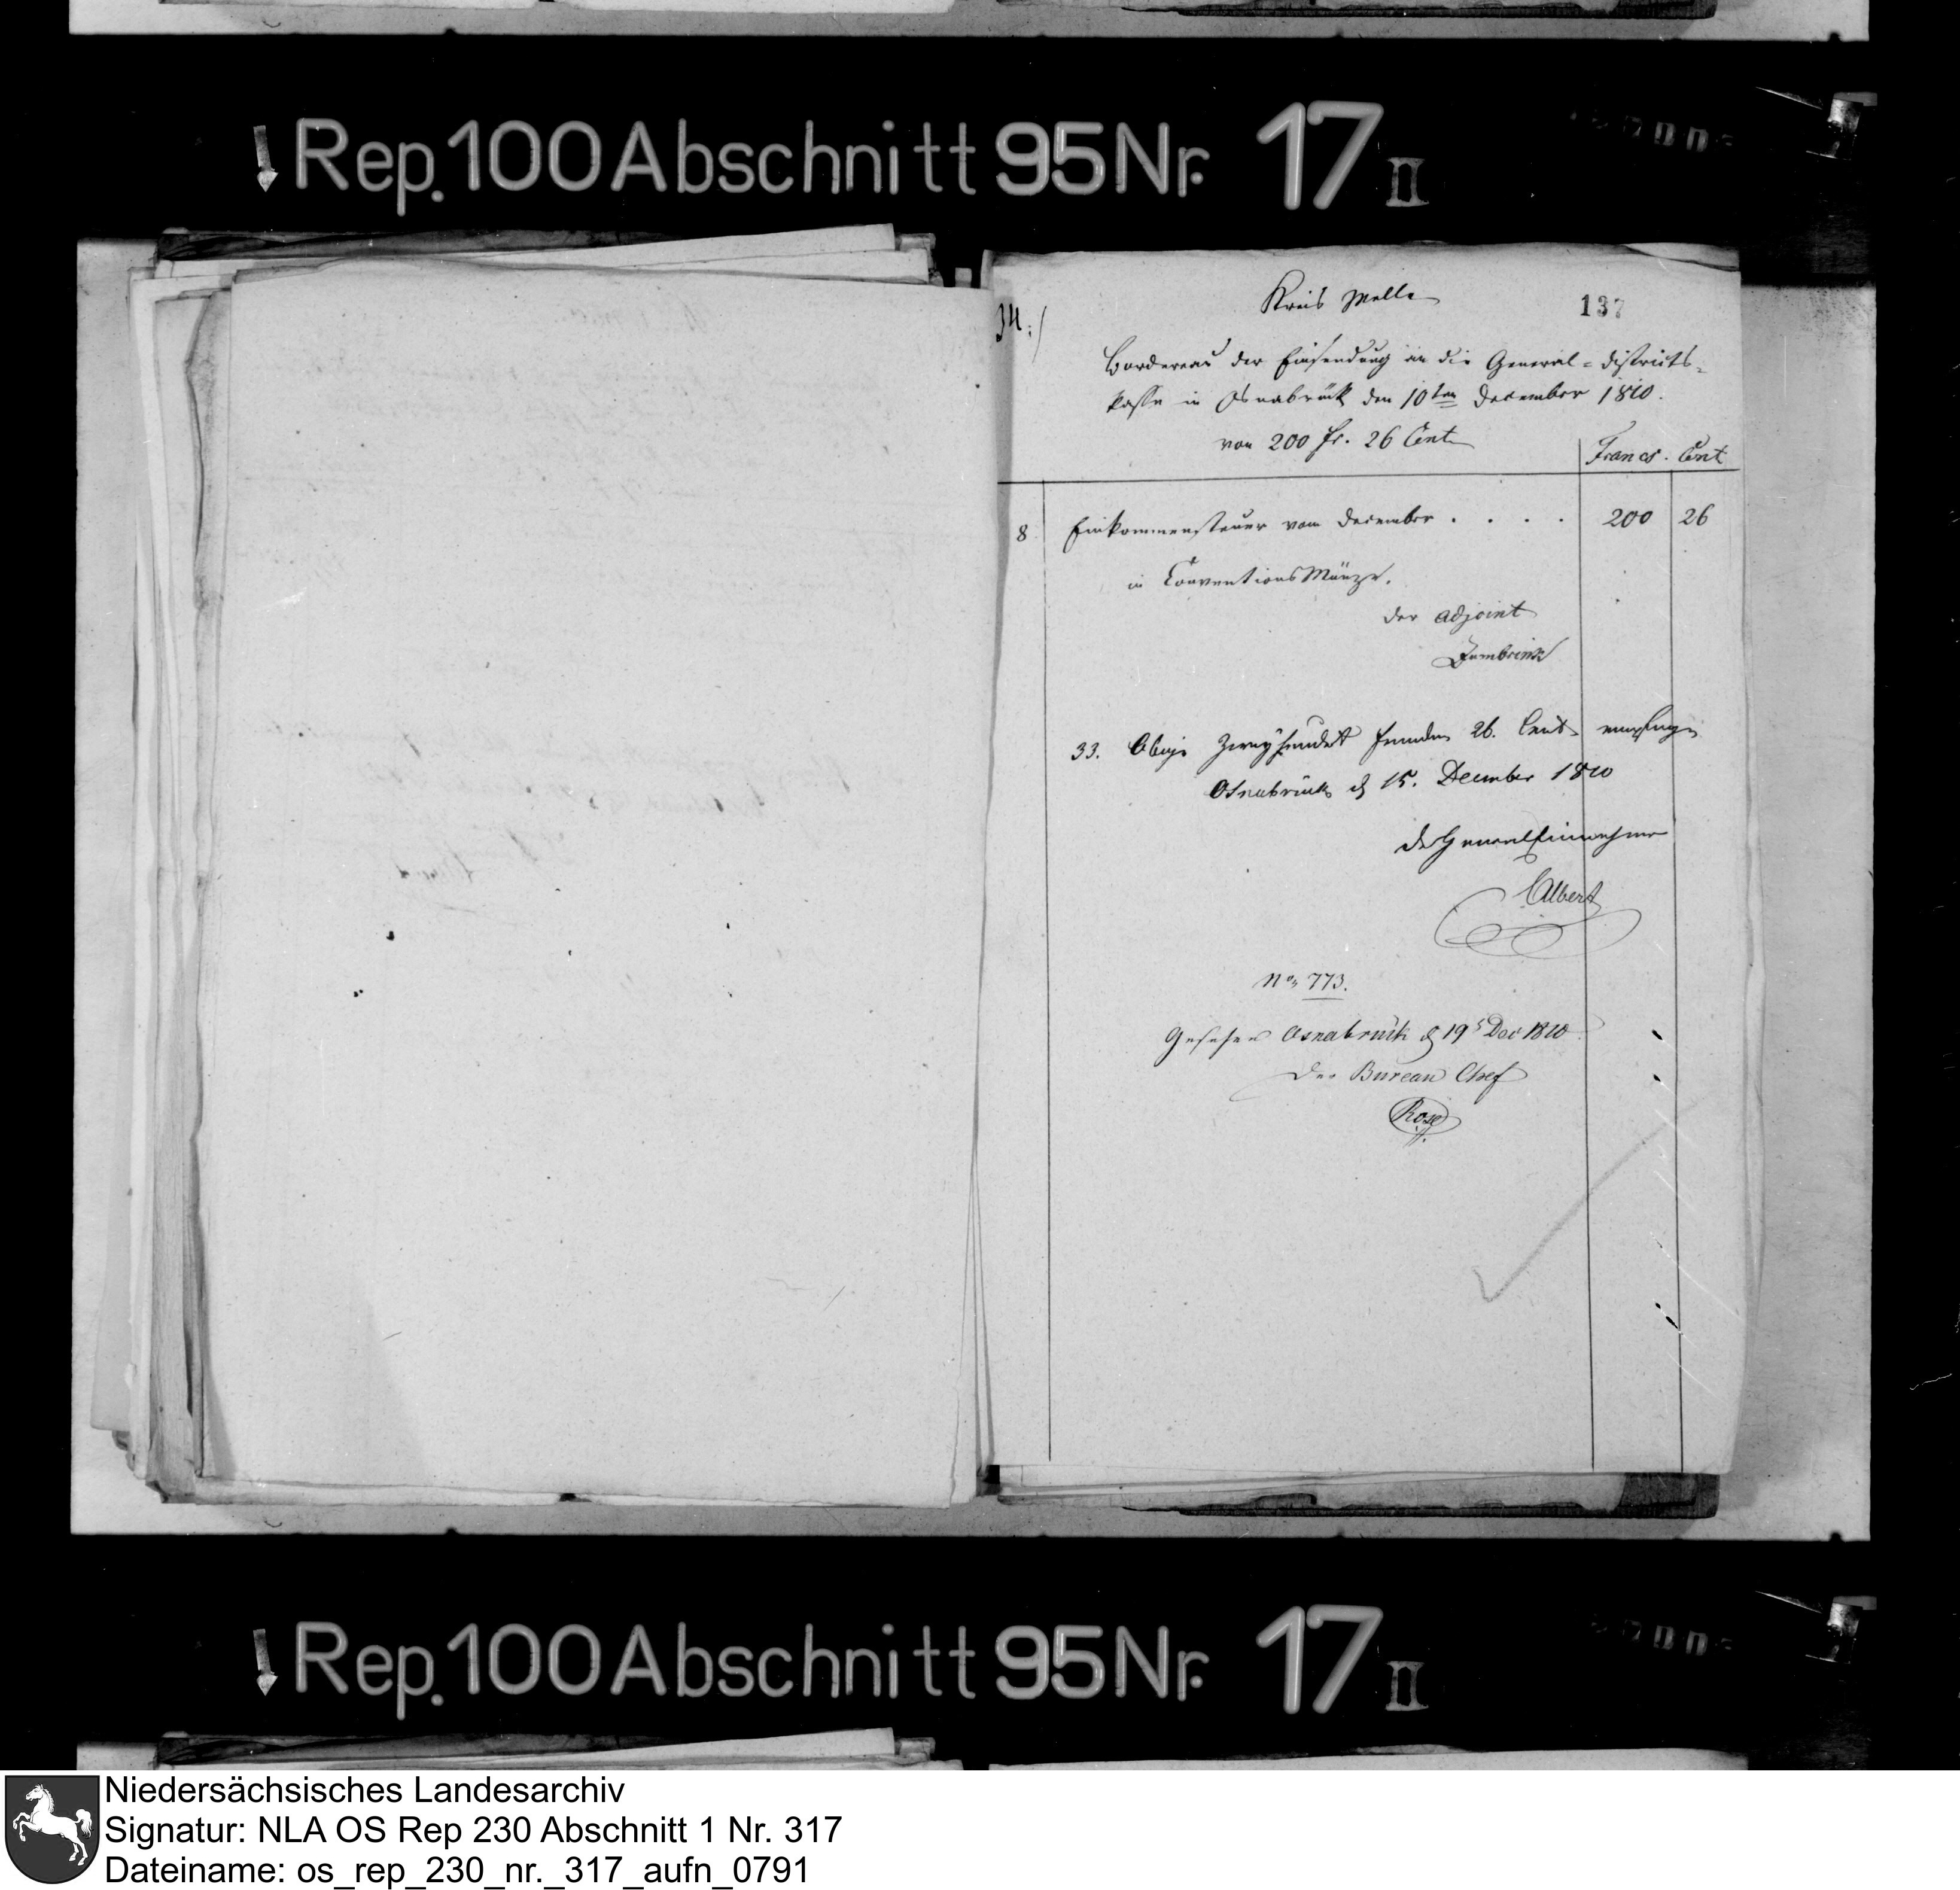 Rep. 100 Abschnitt 95 Nr. 17 II
34.)
Kreis Melle
137
Bordereau der Einsendung an die General-Districts-
kasse in Osnabrück den 10ten December 1810.
von 200 fr. 26 Cent
Francs. Cent
8 Einkommensteuer vom December . . . . 200 26
in Conventions Münze.
der adjoint
Zumbrink
33. Obige Zweyhundert franken 26. Cent. empfangen
Osnabrück d 15. December 1810
der General Einnehmer
Albert
No. 773.
Gesehen Osnabrück d 19 Dec 1810
Der Bureau Chef
Rose
Rep. 100 Abschnitt 95 Nr. 17 II
Niedersächsisches Landesarchiv
Signatur: NLA OS Rep 230 Abschnitt 1 Nr. 317
Dateiname: os_rep_230_nr._317_aufn_0791